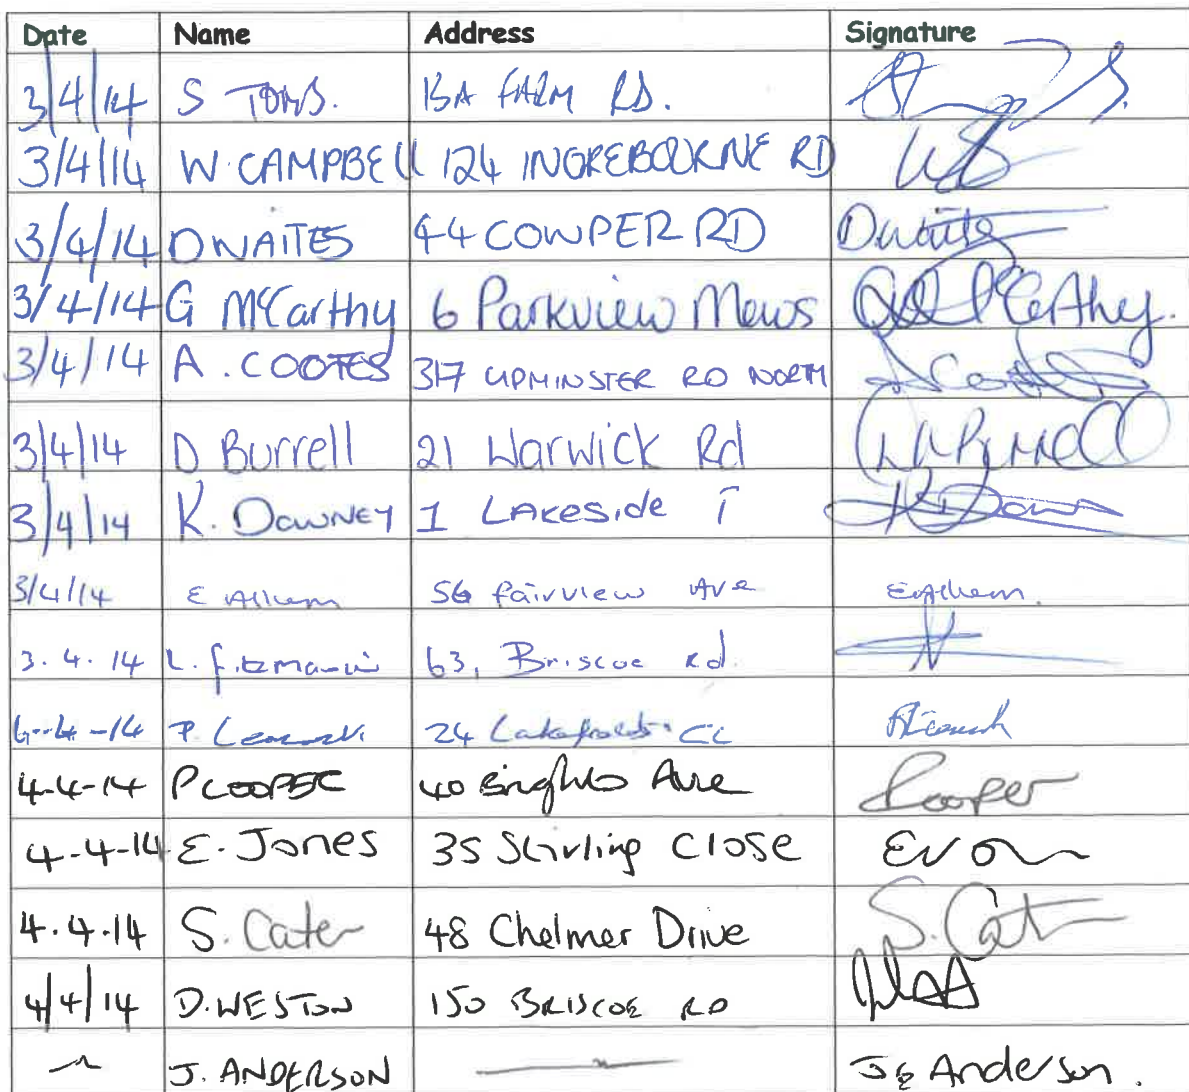 Date Name Address Signature
3/4/14 S TOMS. 13A FARM RD.
3/4/14 W. CAMPBELL 124 INGREBOURNE RD
3/4/14 D WAITES 44 COWPER RD D waites
3/4/14 G McCarthy 6 Parkview Mews McCarthy.
3/4/14 A. COOTES 317 UPMINSTER RD NORTH
3/4/14 D Burrell 21 Warwick Rd Burrell
3/4/14 K. DOWNEY 1 LAKESide T
3/4/14 E 56 fairview Ave
3. 4. 14 L. 63, Briscoe Rd.
4-14 P. 24 CL
4-4-14 P COOPER 40 Ave Cooper
4-4-14 E. Jones 35 Stirling Close
4.4.14 S. Cater 48 Chelmer Drive S. Cater
4/4/14 D. WESTON 150 BRISCOE RD
J. ANDERSON J E Anderson.